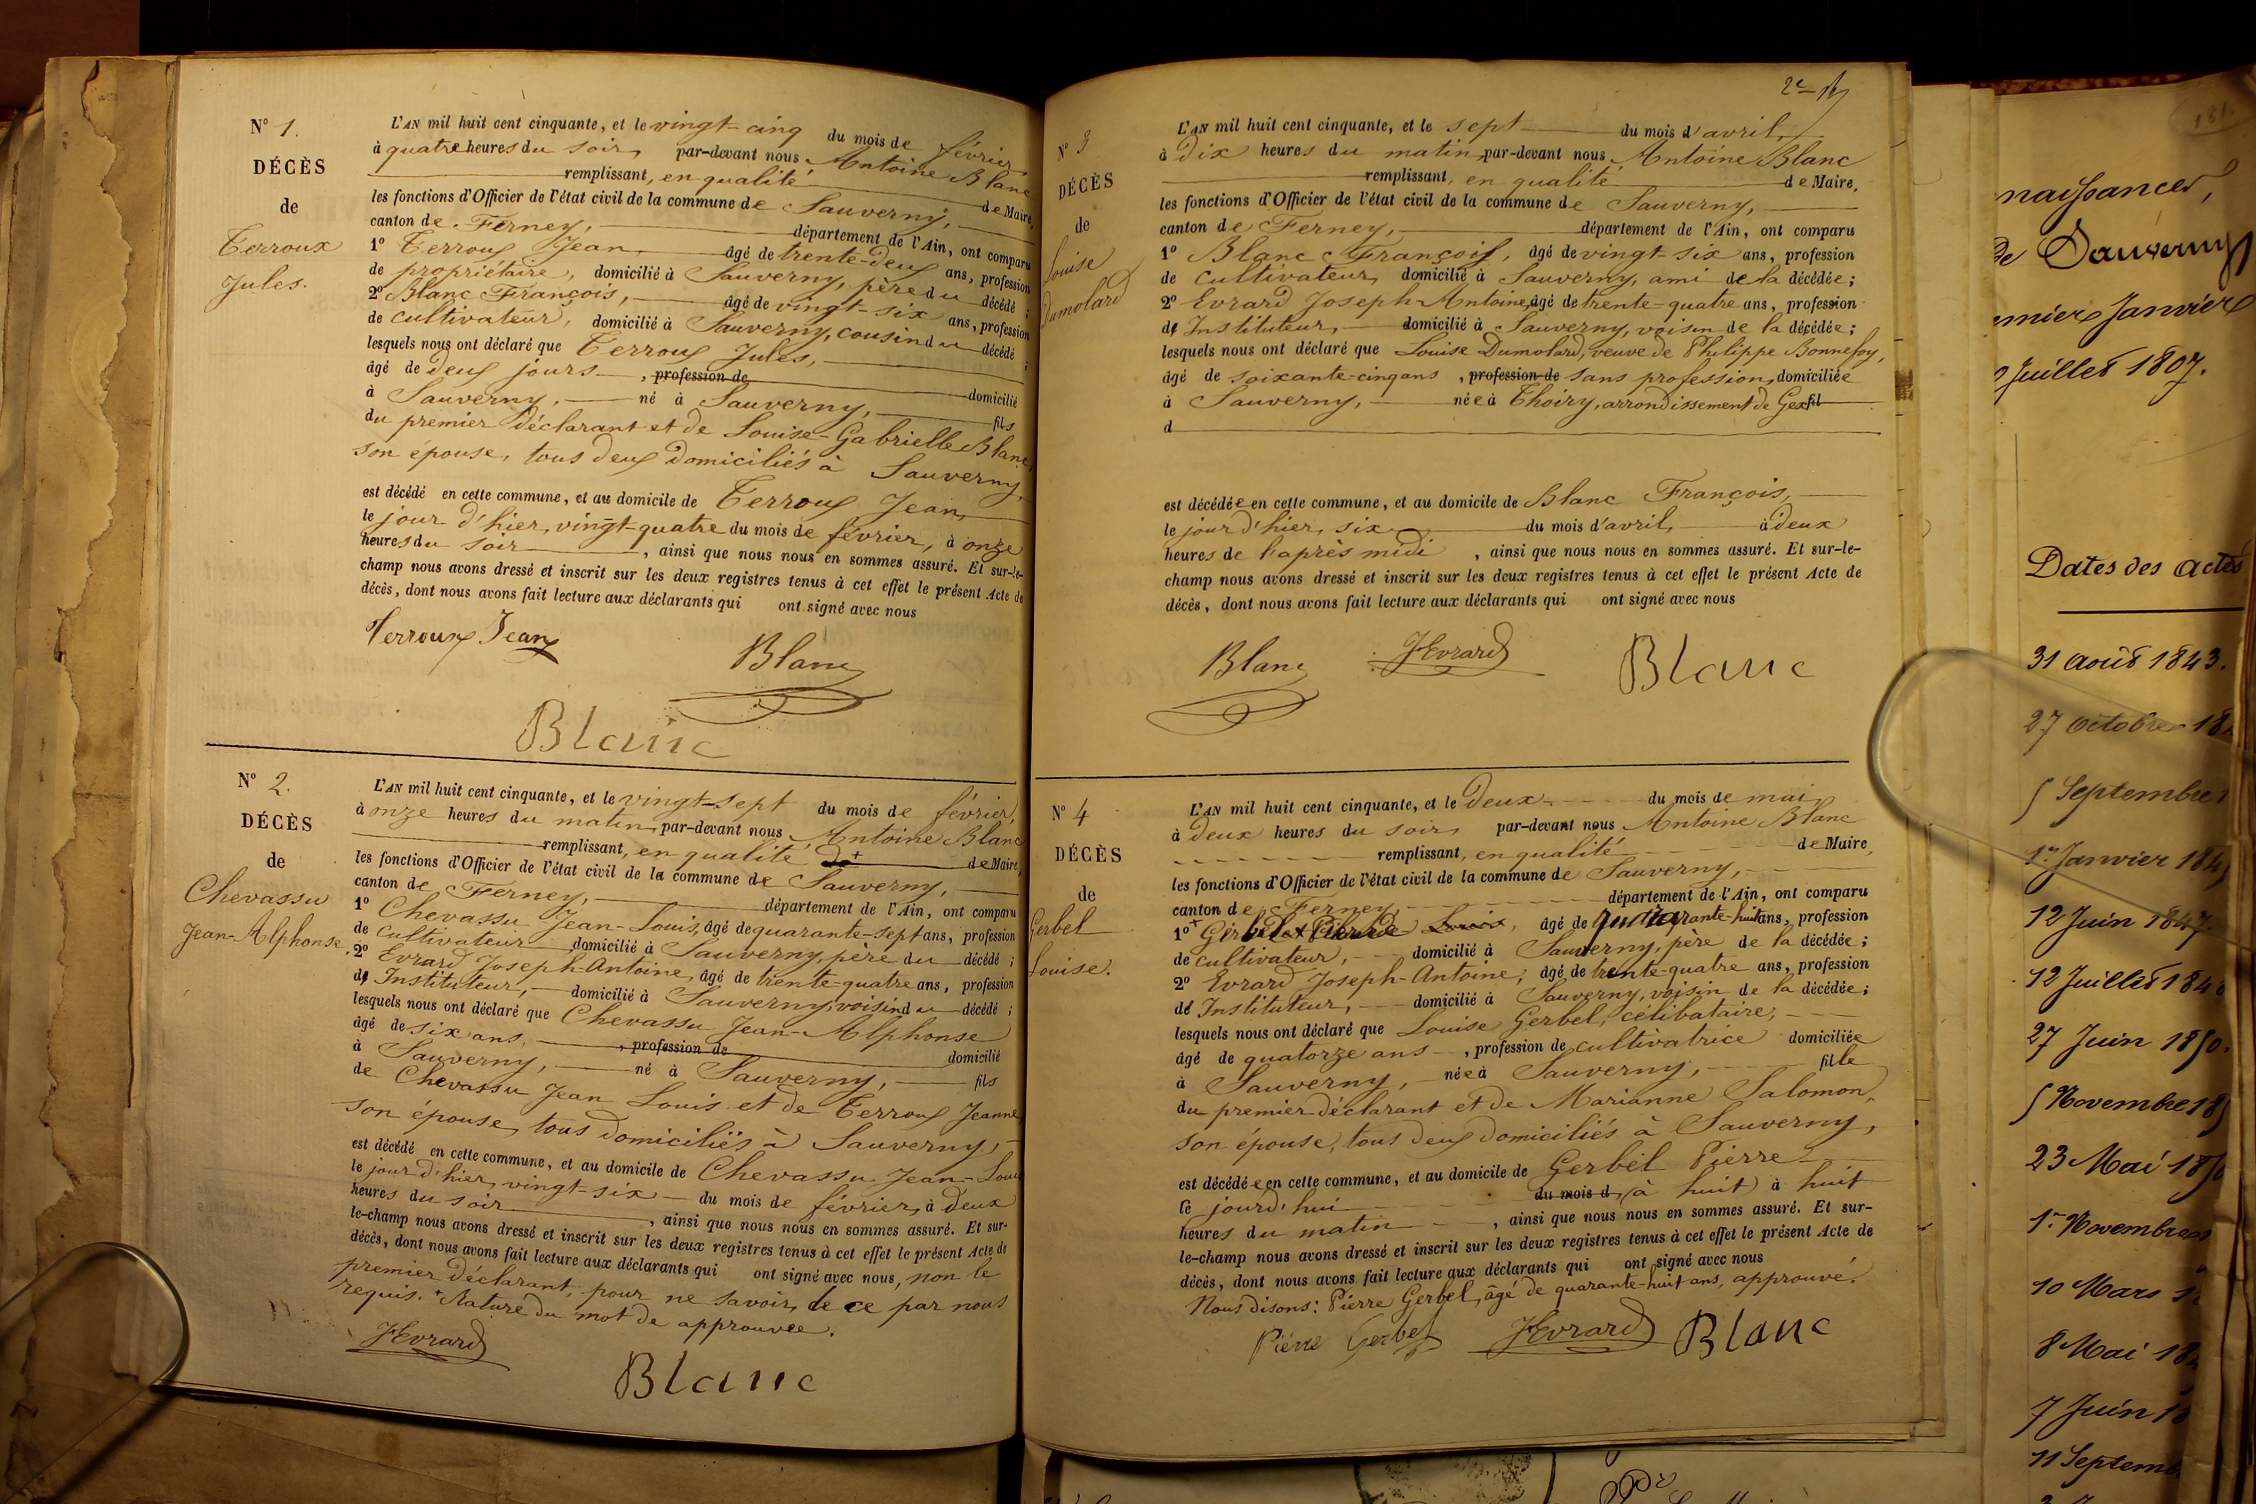 N° 1.
DÉCÈS
de
Terroux
Jules.
L'AN mil huit cent cinquante, et le vingt-cinq du mois de février
à quatre heures du soir, par-devant nous Antoine Blanc
remplissant, en qualité de Maire,
les fonctions d'Officier de l'état civil de la commune de Sauverny,
canton de Ferney, département de l'Ain, ont comparu
1° Terroux Jean, âgé de trente-deux ans, profession
de propriétaire, domicilié à Sauverny, père du décédé ;
2° Blanc François, âgé de vingt-six ans, profession
de cultivateur, domicilié à Sauverny, cousin du décédé ;
lesquels nous ont déclaré que Terroux Jules,
âgé de deux jours, profession de domicilié
à Sauverny, né à Sauverny, fils
du premier déclarant et de Louise-Gabrielle Blanc,
son épouse, tous deux domiciliés à Sauverny,
est décédé en cette commune, et au domicile de Terroux Jean,
le jour d'hier, vingt-quatre du mois de février, à onze
heures du soir, ainsi que nous nous en sommes assuré. Et sur-le-
champ nous avons dressé et inscrit sur les deux registres tenus à cet effet le présent Acte de
décès, dont nous avons fait lecture aux déclarants qui ont signé avec nous
Terroux Jean
Blanc
Blanc
N° 2.
DÉCÈS
de
Chevassu
Jean-Alphonse.
L'AN mil huit cent cinquante, et le vingt-sept du mois de février,
à onze heures du matin, par-devant nous Antoine Blanc
remplissant, en qualité de + de Maire,
les fonctions d'Officier de l'état civil de la commune de Sauverny,
canton de Ferney, département de l'Ain, ont comparu
1° Chevassu Jean-Louis, âgé de quarante-sept ans, profession
de cultivateur domicilié à Sauverny, père du décédé ;
2° Evrard Joseph-Antoine, âgé de trente-quatre ans, profession
d' Instituteur, domicilié à Sauverny, voisin du décédé ;
lesquels nous ont déclaré que Chevassu Jean-Alphonse
âgé de six ans, profession de domicilié
à Sauverny, né à Sauverny, fils
de Chevassu Jean Louis et de Terroux Jeanne
son épouse, tous domiciliés à Sauverny,
est décédé en cette commune, et au domicile de Chevassu Jean-Louis
le jour d'hier, vingt-six du mois de février, à deux
heures du soir, ainsi que nous nous en sommes assuré. Et sur-
le-champ nous avons dressé et inscrit sur les deux registres tenus à cet effet le présent Acte de
décès, dont nous avons fait lecture aux déclarants qui ont signé avec nous, non le
premier déclarant, pour ne savoir, de ce par nous
requis. + Rature du mot de approuvée.
JEvrard
Blanc
2e
N° 3
DÉCÈS
de
Louise
Dumolard
L'AN mil huit cent cinquante, et le sept du mois d'avril,
à dix heures du matin, par-devant nous Antoine Blanc
remplissant, en qualité de Maire,
les fonctions d'Officier de l'état civil de la commune de Sauverny,
canton de Ferney, département de l'Ain, ont comparu
1° Blanc François, âgé de vingt-six ans, profession
de cultivateur, domicilié à Sauverny, ami de la décédée ;
2° Evrard Joseph-Antoine, âgé de trente-quatre ans, profession
d' Instituteur, domicilié à Sauverny, voisin de la décédée ;
lesquels nous ont déclaré que Louise Dumolard, veuve de Philippe Bonnefoy,
âgé de soixante-cinq ans, profession de sans profession, domiciliée
à Sauverny, née à Thoiry, arrondissement de Gex fil
d
est décédée en cette commune, et au domicile de Blanc François,
le jour d'hier, six du mois d'avril, à deux
heures de l'après midi, ainsi que nous nous en sommes assuré. Et sur-le-
champ nous avons dressé et inscrit sur les deux registres tenus à cet effet le présent Acte de
décès, dont nous avons fait lecture aux déclarants qui ont signé avec nous
Blanc
JEvrard
Blanc
N° 4
DÉCÈS
de
Gerbel
Louise.
L'AN mil huit cent cinquante, et le deux du mois de mai,
à deux heures du soir, par-devant nous Antoine Blanc
remplissant, en qualité de Maire,
les fonctions d'Officier de l'état civil de la commune de Sauverny,
canton de Ferney, département de l'Ain, ont comparu
1° + Gerbel Pierre Louis, âgé de quarante-huit ans, profession
de cultivateur, domicilié à Sauverny, père de la décédée ;
2° Evrard Joseph-Antoine, âgé de trente-quatre ans, profession
d' Instituteur, domicilié à Sauverny, voisin de la décédée ;
lesquels nous ont déclaré que Louise Gerbel, célibataire,
âgé de quatorze ans, profession de cultivatrice domiciliée
à Sauverny, née à Sauverny, fille
du premier déclarant et de Marianne Salomon,
son épouse, tous deux domiciliés à Sauverny,
est décédée en cette commune, et au domicile de Gerbel Pierre
ce jourd'hui du mois d (à huit) à huit
heures du matin, ainsi que nous nous en sommes assuré. Et sur-
le-champ nous avons dressé et inscrit sur les deux registres tenus à cet effet le présent Acte de
décès, dont nous avons fait lecture aux déclarants qui ont signé avec nous
Nous disons : Pierre Gerbel, âgé de quarante-huit ans, approuvé.
Pierre Gerbel
JEvrard
Blanc
181.
naissances,
de Sauverny
Janvier
Juillet 1807.
Dates des actes
31 août 1843.
27 octobre 18
5 Septembre
1er Janvier 184
12 Juin 1847.
12 Juillet 184
27 Juin 1850.
5 Novembre 18
23 Mai 18
1er Novembre
10 Mars
8 Mai 18
7 Juin 1
11 Septem